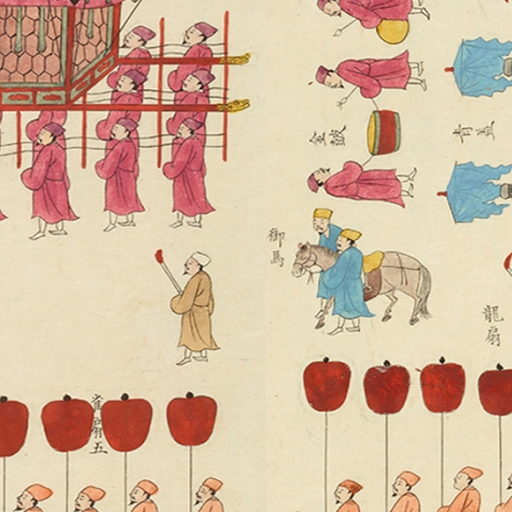 青蓋
金鼓
御馬
龍扇
雀扇五